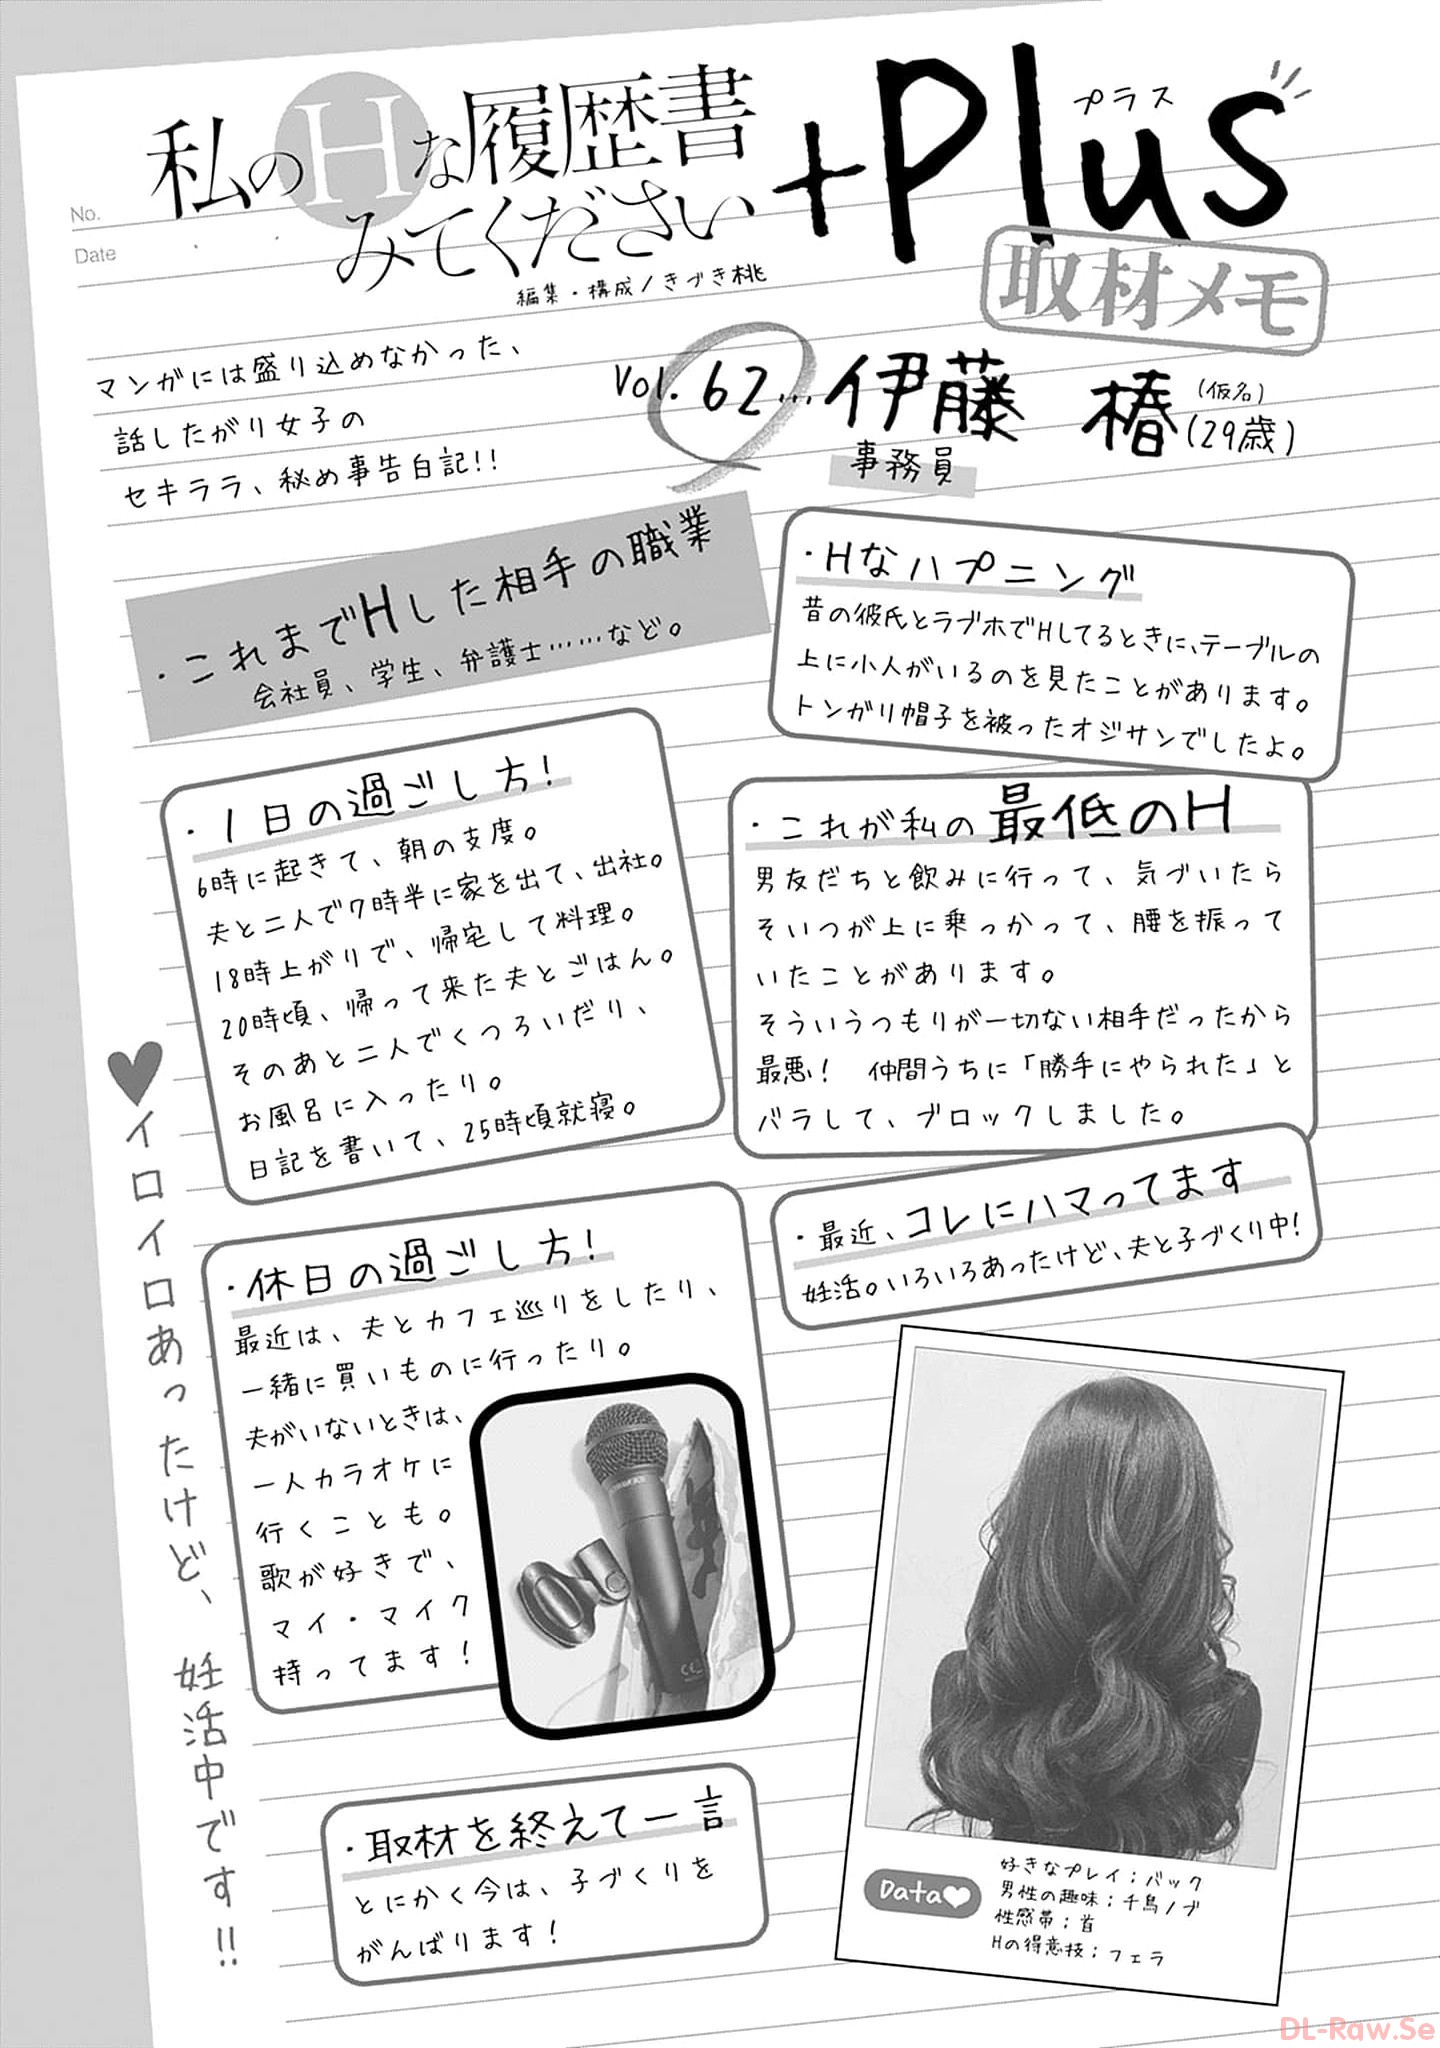 No.
Date
私のHな履歴書
みてください
+Plus
プラス
取材メモ
編集・構成/きづき桃
マンガには盛り込めなかった、
話したがり女子の
セキララ、秘め事告白記!!
Vol.62…伊藤 椿(仮名)(29歳)
事務員
・これまでHした相手の職業
会社員、学生、弁護士……など。
・Hなハプニング
昔の彼氏とラブホでHしてるときに、テーブルの
上に小人がいるのを見たことがあります。
トンガリ帽子を被ったオジサンでしたよ。
・1日の過ごし方!
6時に起きて、朝の支度。
夫と二人で7時半に家を出て、出社。
18時上がりで、帰宅して料理。
20時頃、帰って来た夫とごはん。
そのあと二人でくつろいだり、
お風呂に入ったり。
日記を書いて、25時頃就寝。
・これが私の最低のH
男友だちと飲みに行って、気づいたら
そいつが上に乗っかって、腰を振って
いたことがあります。
そういうつもりが一切ない相手だったから
最悪! 仲間うちに「勝手にやられた」と
バラして、ブロックしました。
・最近、コレにハマってます
妊活。いろいろあったけど、夫と子づくり中!
・休日の過ごし方!
最近は、夫とカフェ巡りをしたり、
一緒に買いものに行ったり。
夫がいないときは、
一人カラオケに
行くことも。
歌が好きで、
マイ・マイク
持ってます!
♥イロイロあったけど、妊活中です!!
・取材を終えて一言
とにかく今は、子づくりを
がんばります!
Data♥
好きなプレイ；バック
男性の趣味；千鳥ノブ
性感帯；首
Hの得意技；フェラ
DL-Raw.Se